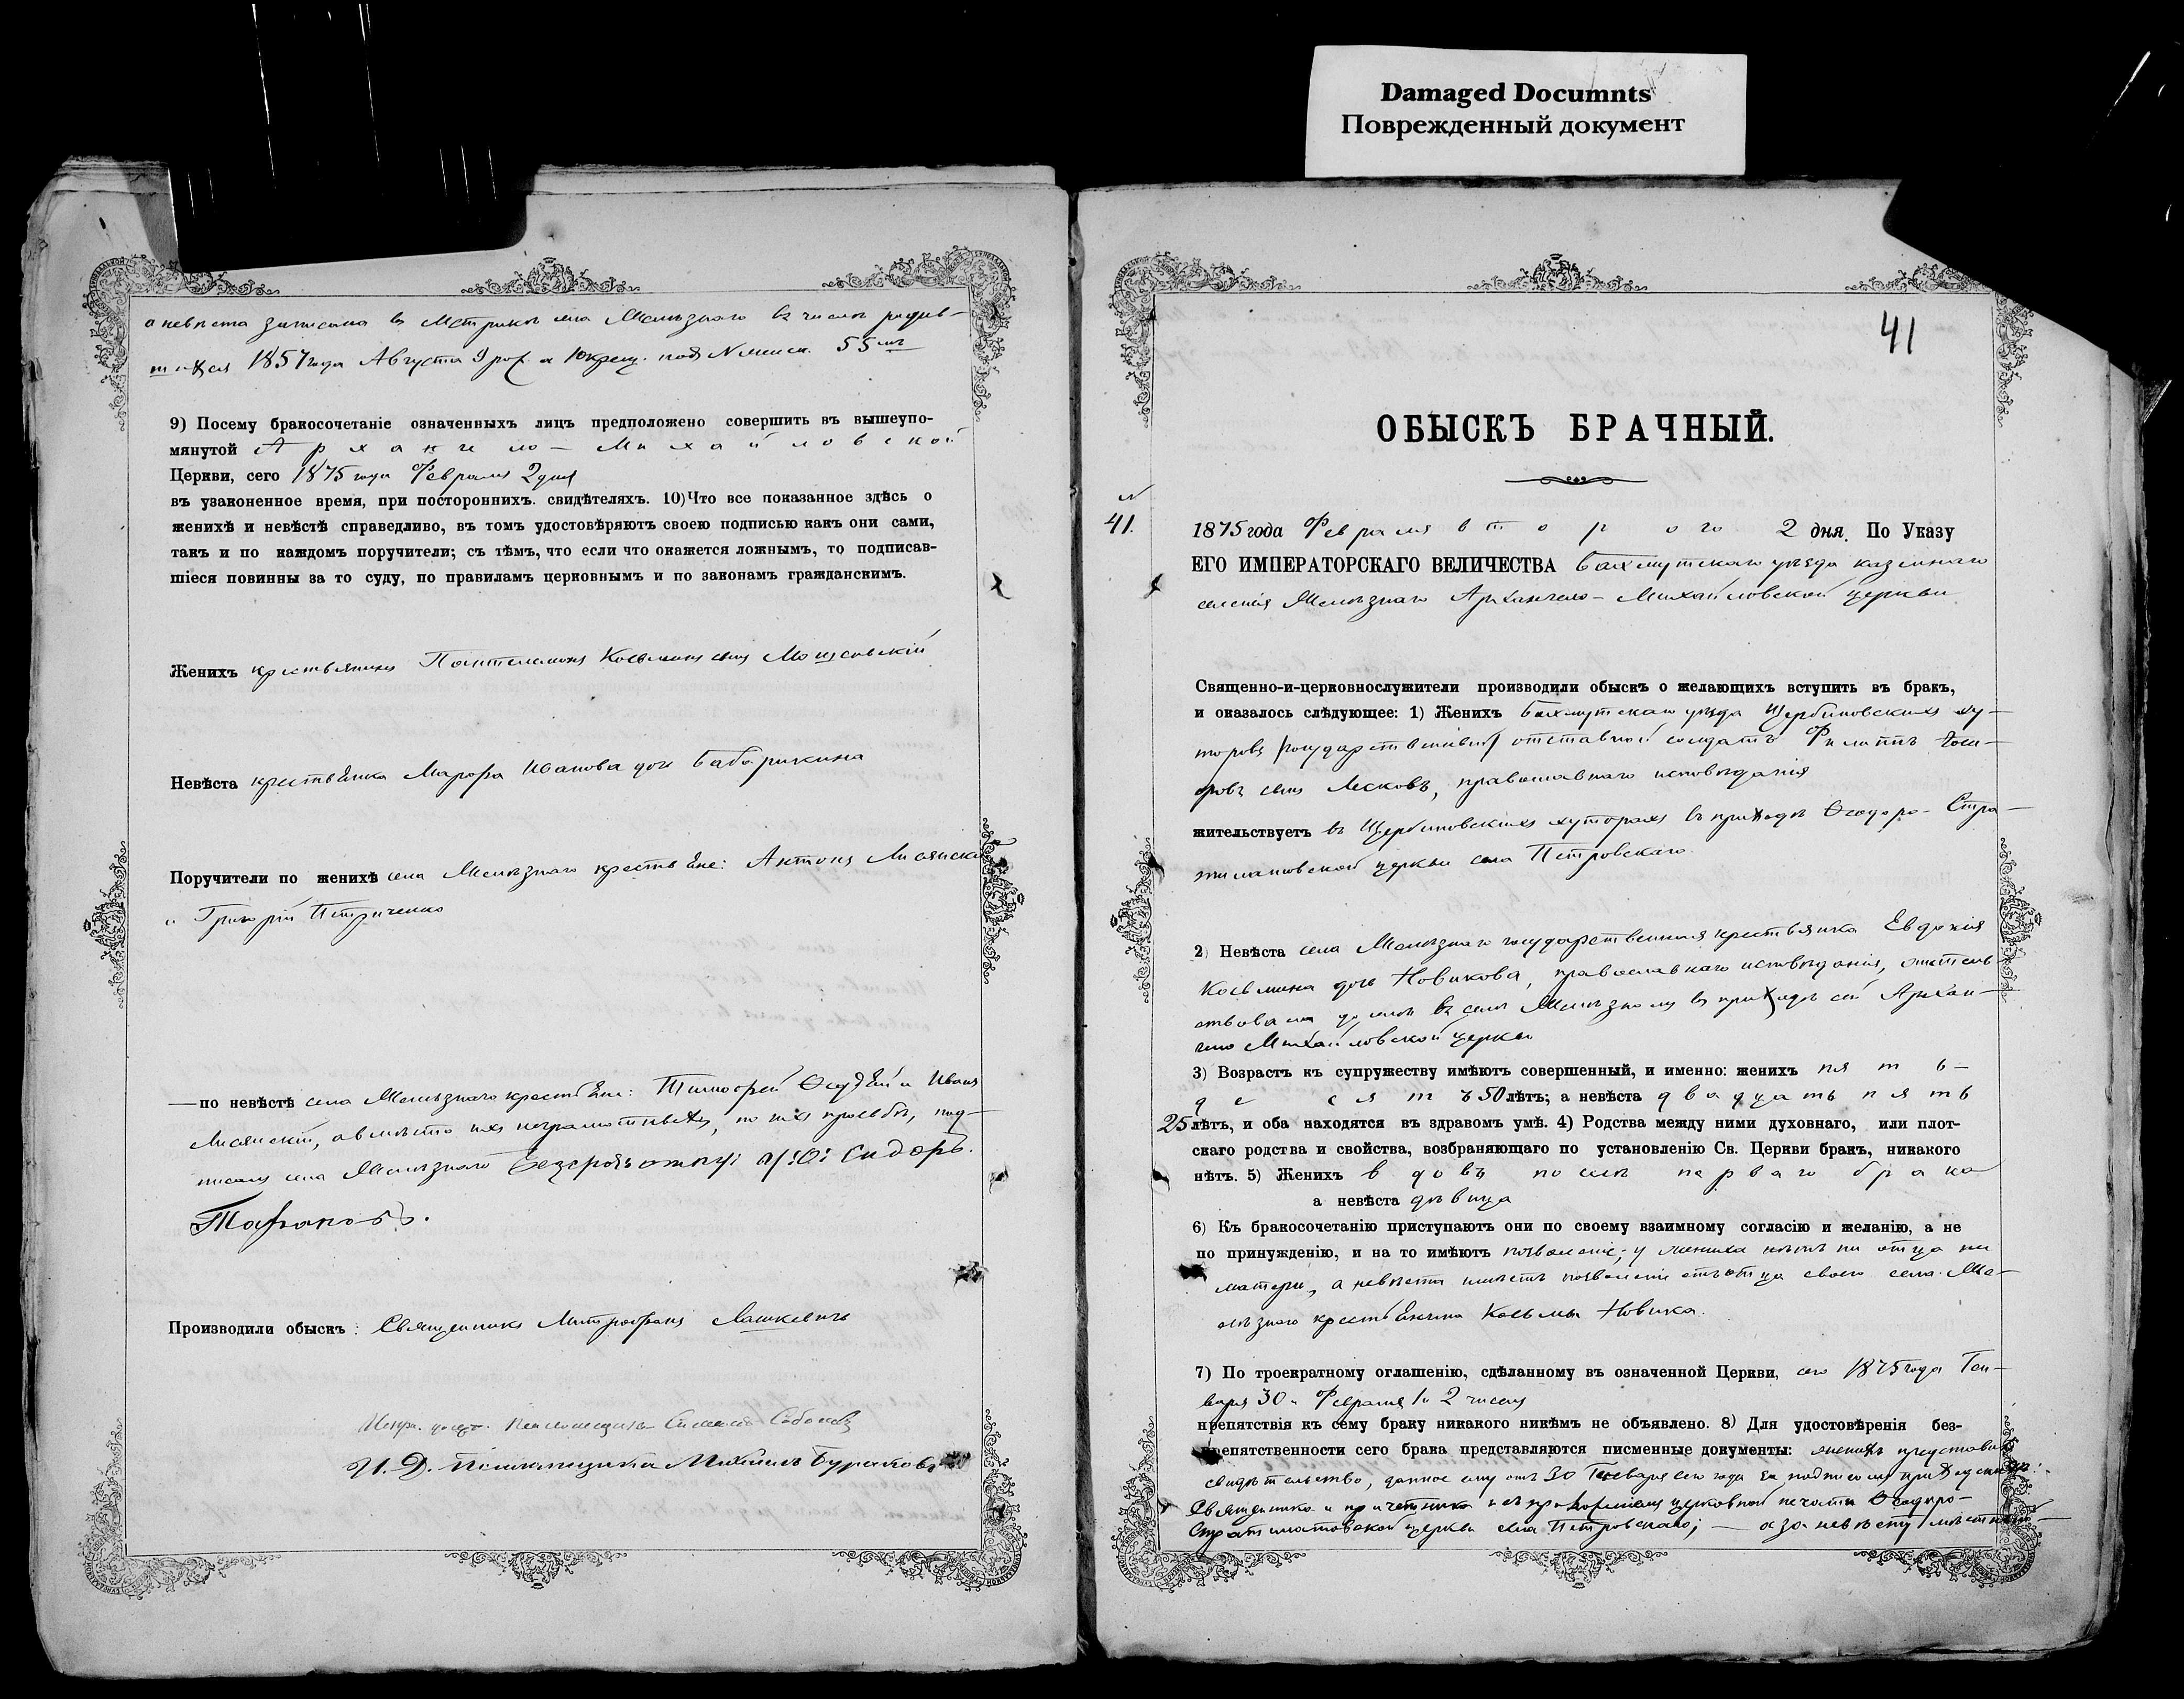 Damaged Documnts
Поврежденный документ
а невѣста записана въ Метрикѣ села Желѣзнаго въ числѣ родив-
шихся 1857 года Августа 9 рож. а 10 крещ. подъ № женск. 55мъ
9) Посему бракосочетаніе означенныхъ лицъ предположено совершить въ вышеупо-
мянутой Архангело-Михайловской
Церкви, сего 1875 года Февраля 2 дня
въ узаконенное время, при постороннихъ. свидѣтеляхъ. 10) Что все показанное здѣсь о
женихѣ и невѣстѣ справедливо, въ томъ удостовѣряютъ своею подписью какъ они сами,
такъ и по каждомъ поручители; съ тѣмъ, что если что окажется ложнымъ, то подписав-
шіеся повинны за то суду, по правиламъ церковнымъ и по законамъ гражданскимъ.
Женихъ крестьянинъ Пантелеимонъ Косьминъ сынъ
Невѣста крестьянка Марфа Иванова дочь Бабарыкина
Поручители по женихѣ села Желѣзнаго крестьяне: Антонъ
и Григорій Петриченко
— по невѣстѣ села Желѣзнаго крестьяне: Тимофей и Иванъ
Лисянскій, а вмѣсто ихъ неграмотныхъ, по ихъ прозьбѣ, под-
писалъ села Желѣзнаго Сидоръ
Тарановъ.
Производили обыскъ: Священникъ Митрофанъ Лашкевичъ
Испр. долж. Псаломщика
И. Д. Псаломщика Михаилъ Бураковъ
41
ОБЫСКЪ БРАЧНЫЙ.
№
41.
1875 года Февраля второго 2 дня. По Указу
ЕГО ИМПЕРАТОРСКАГО ВЕЛИЧЕСТВА Бахмутскаго уѣзда казеннаго
селенія Желѣзнаго Архангело-Михайловской церкви
Священно-и-церковнослужители производили обыскъ о желающихъ вступить въ бракъ,
и оказалось слѣдующее: 1) Женихъ Бахмутскаго уѣзда Щербиновскихъ ху-
торовъ отставной солдатъ Филиппъ
сынъ Лесковъ, православнаго исповѣданія
жительствуетъ въ Щербиновскихъ хуторахъ въ приходѣ Ѳеодоро-Стра-
тилатовской церкви села Петровскаго.
2) Невѣста села Желѣзнаго государственная крестьянка Евдокія
Косьмина дочь Новикова, православнаго исповѣданія, житель-
ствовала въ селѣ Желѣзномъ въ приходѣ сей Архан-
гело Михайловской церкви
3) Возрастъ къ супружеству имѣютъ совершенный, и именно: женихъ пять-
десятъ 50 лѣтъ; а невѣста двадцать пять
25 лѣтъ, и оба находятся въ здравомъ умѣ. 4) Родства между ними духовнаго, или плот-
скаго родства и свойства, возбраняющаго по установленію Св. Церкви бракъ, никакого
нѣтъ. 5) Женихъ вдовъ послѣ перваго брака
а невѣста дѣвица
6) Къ бракосочетанію приступаютъ они по своему взаимному согласію и желанію, а не
по принужденію, и на то имѣютъ позволеніе; у жениха нѣтъ ни отца ни
матери, а невѣста имѣетъ позволеніе отъ отца своего села Же-
лѣзнаго крестьянина Косьмы Новика.
7) По троекратному оглашенію, сдѣланному въ означенной Церкви, сего 1875 года Ген-
варя 30 и Февраля 1 и 2 чиселъ
препятствія къ сему браку никакого никѣмъ не объявлено. 8) Для удостовѣренія без-
препятственности сего брака представляются писменные документы: женихъ представилъ
свидѣтельство, данное ему отъ 30 Генваря сего года за подписомъ
Священника и причетника и съ приложеніемъ церковной печати Ѳеодоро-
Стратилатовской церкви села Петровскаго; — а за невѣсту